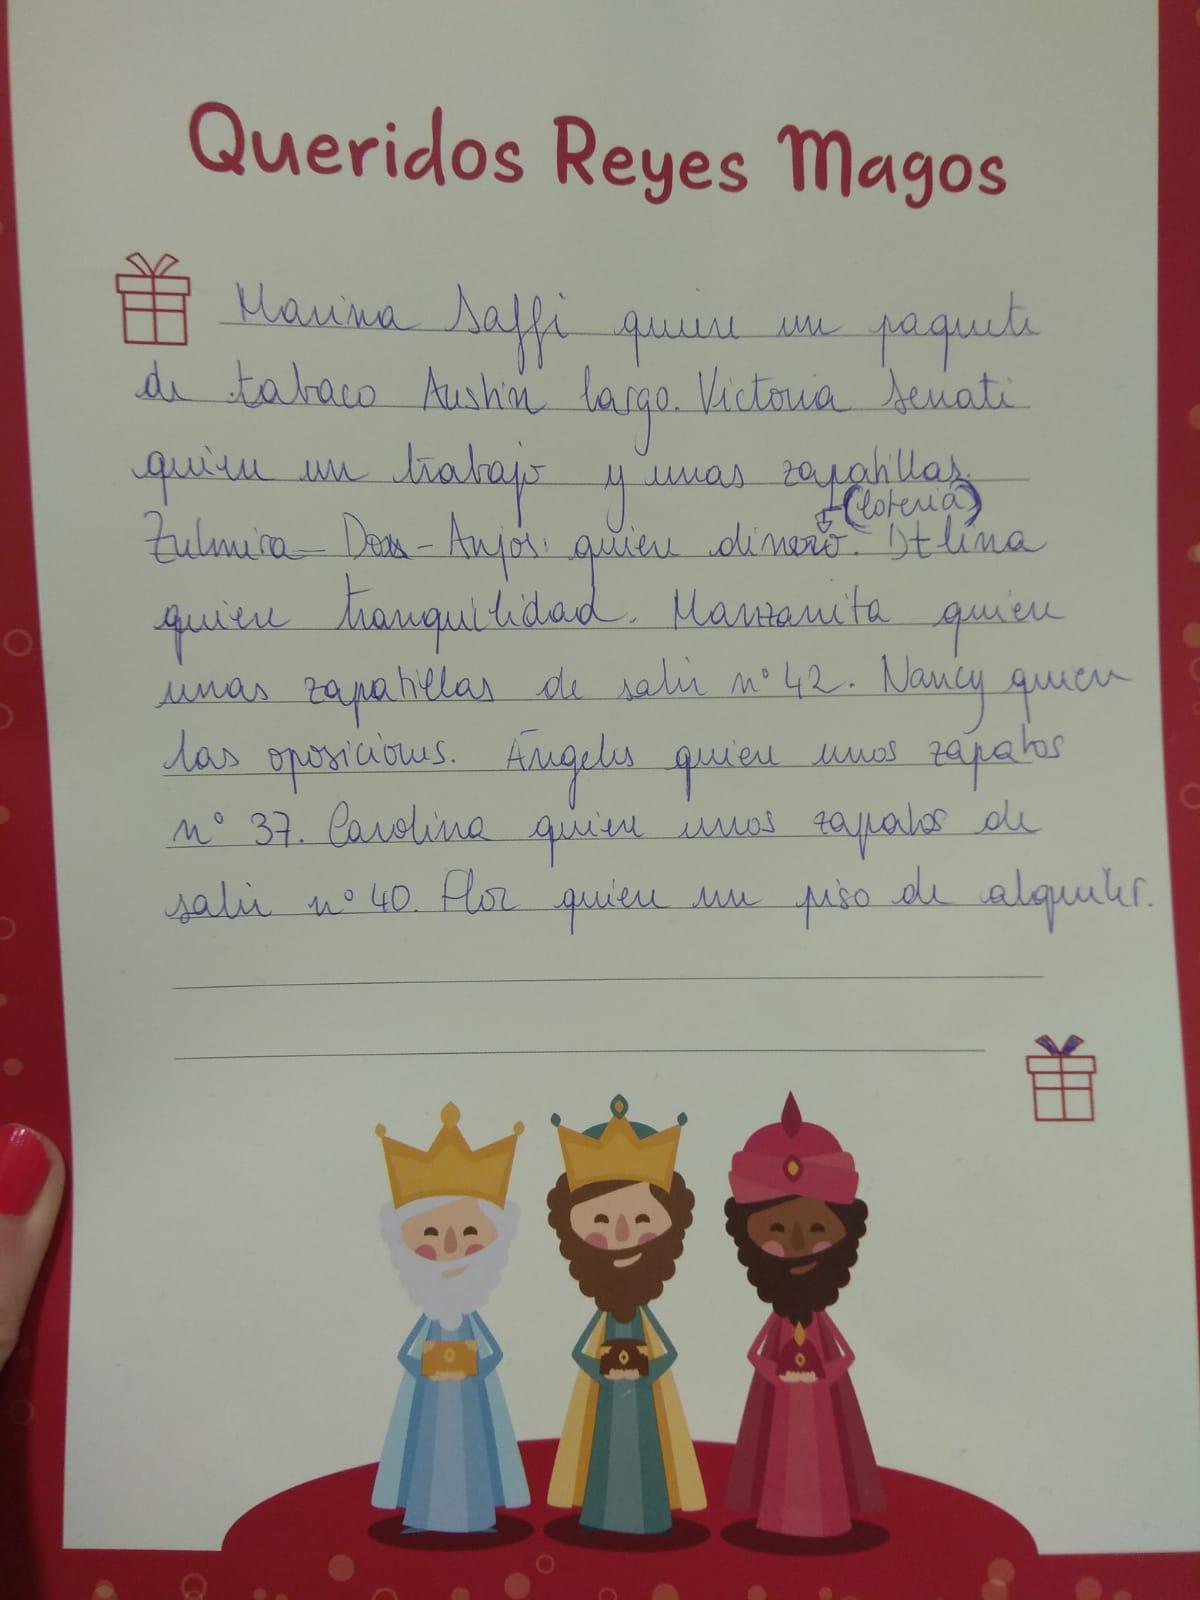 Queridos Reyes Magos
Marina Saffi quiere un paquete
de tabaco Austin largo. Victoria Senati
quiere un trabajo y unas zapatillas.
(lotería)
Zulmira - Dos - Anjos: quiere dinero.
quiere tranquilidad. Manzanita quiere
unas zapatillas de salir nº 42. Nancy quiere
las oposiciones. Ángeles quiere unos zapatos
nº 37. Carolina quiere unos zapatos de
salir nº 40. Flor quiere un piso de alquiler.